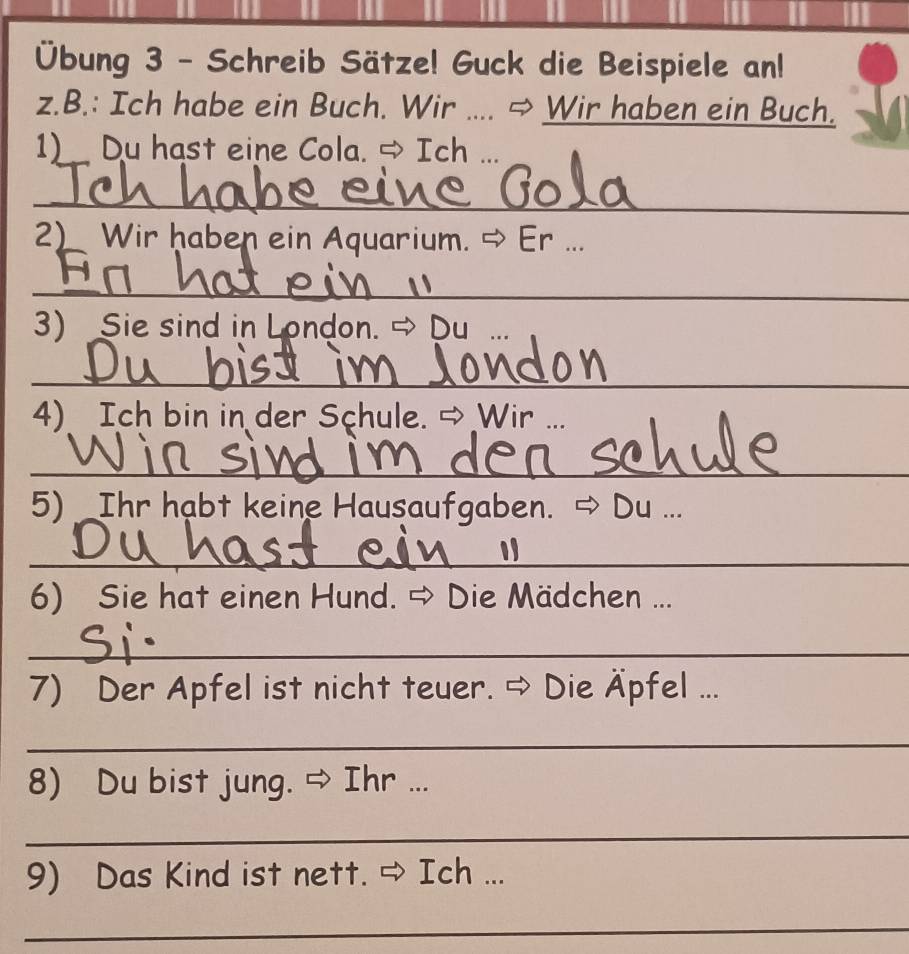 Übung 3 - Schreib Sätze! Guck die Beispiele an!
z.B.: Ich habe ein Buch. Wir .... ⇨ Wir haben ein Buch.
1) Du hast eine Cola. ⇨ Ich ...
Ich habe eine Cola
2) Wir haben ein Aquarium. ⇨ Er ...
Er hat ein "
3) Sie sind in London. ⇨ Du ...
Du bist im london
4) Ich bin in der Schule. ⇨ Wir ...
Wir sind im der schule
5) Ihr habt keine Hausaufgaben. ⇨ Du ...
Du hast ein "
6) Sie hat einen Hund. ⇨ Die Mädchen ...
Si.
7) Der Apfel ist nicht teuer. ⇨ Die Äpfel ...
8) Du bist jung. ⇨ Ihr ...
9) Das Kind ist nett. ⇨ Ich ...